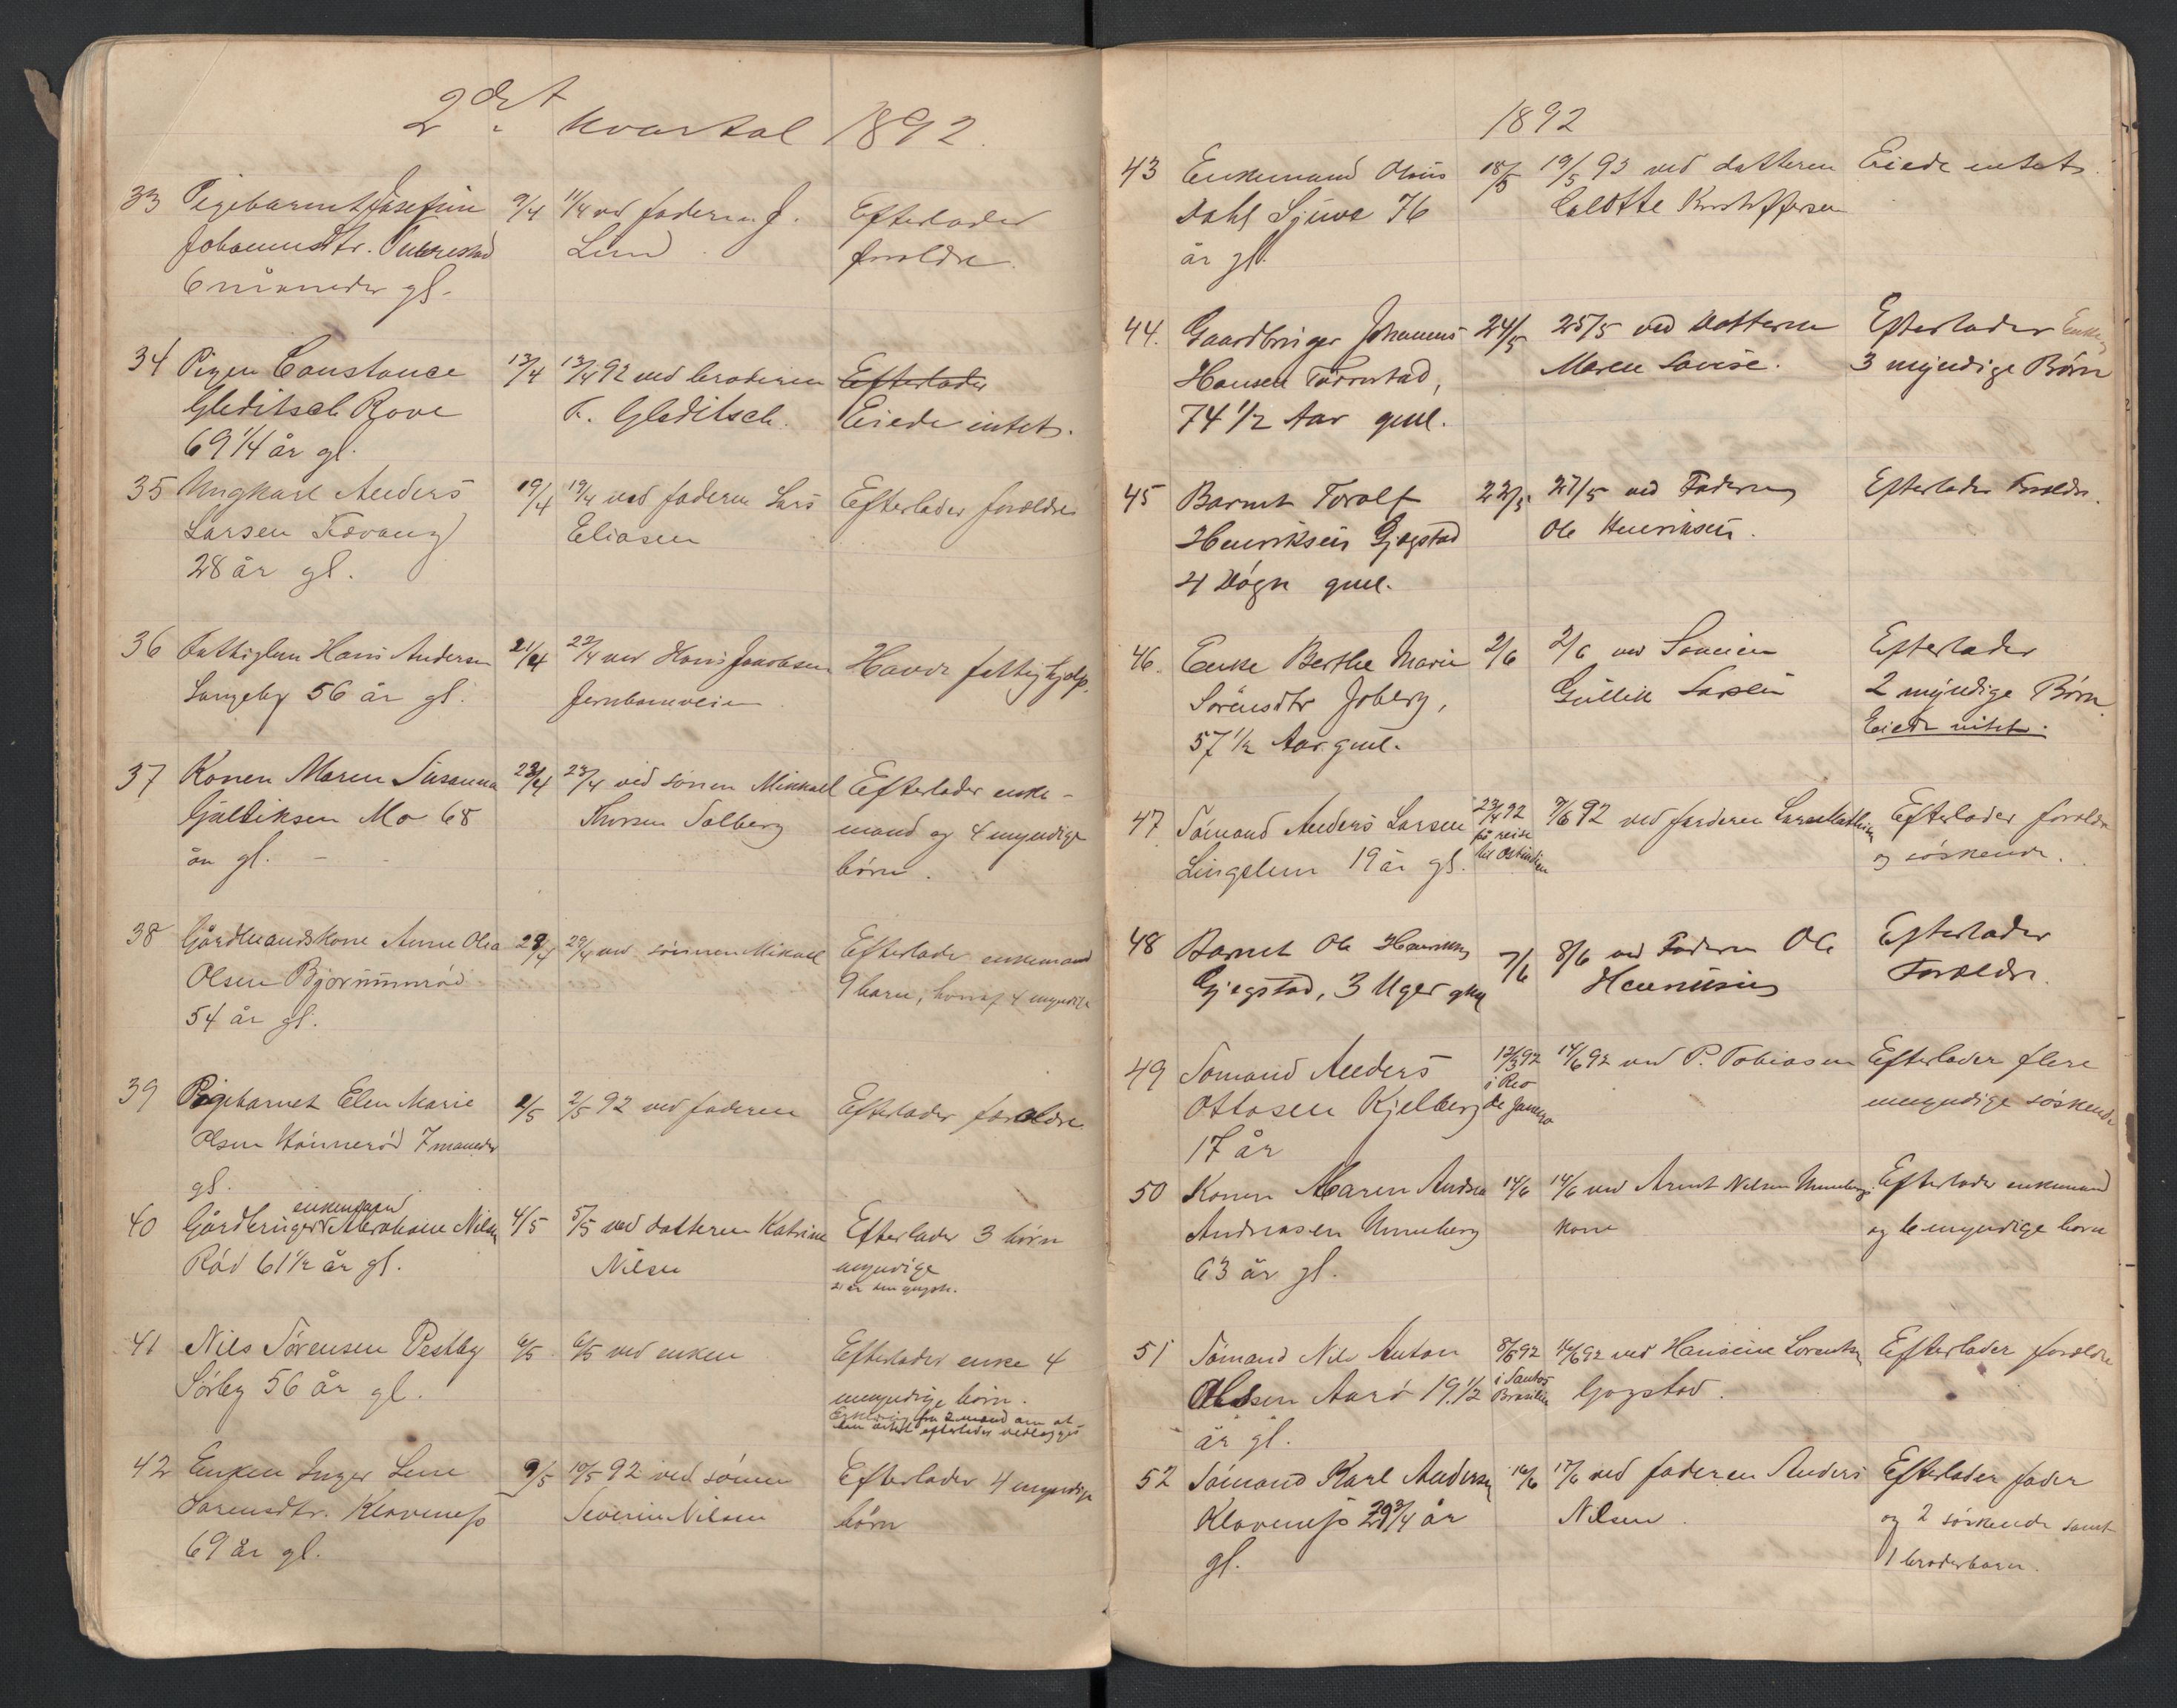 2det Kvartal 1892.
33 Pigebarnet Josefine 9/4 11/4 ved faderen J. Efterlader
Johannesdtr. Lund forældre.
6 måneder gl.
34 Pigen Constance 13/4 13/4 92 ved broderen Efterlader
Gleditsch Rove F. Gleditsch. Eiede intet.
69 1/4 år gl.
35 Ungkarl Anders 19/4 19/4 ved faderen Lars Efterlader forældre
Larsen Eliasen
28 år gl.
36 Fattiglem Hans Andersen 21/4 22/4 ved Hans Jakobsen Havde fattighjelp.
Langeby 56 år gl. Jernbaneveien
37 Konen Maren Susanna 23/4 23/4 ved sønnen Mikkael Efterlader enke-
Gulliksen Mo 68 Thorsen Solberg mand og 4 myndige
år gl. børn.
38 Gårdmandskone Anne Olea 28/4 29/4 ved sønnen Mikael Efterlader enkemand
Olsen 9 barn, hvoraf 4 myndige
54 år gl.
39 Pigebarnet Elen Marie 2/5 2/5 92 ved faderen Efterlader forældre
Olsen 7 maaneder
gl.
enkemand
40 Gårdbruger Abraham Nilsen 4/5 5/5 ved datteren Katrine Efterlader 3 børn
Rød 61 1/2 år gl. Nilsen myndige
41 Nils Sørensen Vestby 6/5 6/5 ved enken Efterlader enke 4
Sörby 56 år gl. umyndige børn.
Erklæring fra 2 mænd om at
den intet efterlader vedlægges
42 Enken Inger Lene 9/5 10/5 92 ved sønnen Efterlader 4 myndige
Sørensdtr. Klavenes Severin Nilsen børn
69 år gl.
1892
43 Enkemand Olaus 18/5 19/5 93 ved datteren Eiede intet.
Dahl Sjuve 76 Kristoffersen
år gl.
44. Gaardbruger Johannes 24/5 25/5 ved Datteren Efterlader Enke
Hansen 3 myndige Børn
74 1/2 Aar gml. Maren Lovise.
45 Barnet Toralf 22/5 27/5 ved Faderen Efterlader Forældre.
Henriksen Gjegstad Ole Henriksen.
4 Døgn gml.
46. Enke Berthe Marie 2/6 2/6 ved Sønnen Efterlader
Sørensdtr Joberg, Gullik Larsen 2 myndige Børn.
57 1/2 Aar gml. Eiede intet.
47. Sømand Anders Larsen 23/4 92 7/6 92 ved faderen Lars Mathisen Efterlader forældre
Lingelem 19 år gl. på reise til Ostindien og söskende.
48 Barnet Ole Henriksen 7/6 8/6 ved Faderen Ole Efterlader
Gjegstad, 3 Uger gml Henriksen Forældre.
49 Sømand Anders 12/3 92 14/6 92 ved P. Tobiasen Efterlader flere
Ottosen Kjelberg i Rio de Janeiro umyndige söskende
17 år
50 Konen Maren Andrea 14/6 14/6 ved Arnt Nilsen Unneberg Efterlader enkemand
Andreasen Unneberg kone og 6 myndige børn
63 år gl.
51 Sömand Nils Anton 8/5 92 16/6 92 ved Hansine Lorentsen Efterlader forældre
Olsen Aarö 19.1/2 i Santos Brasilien Gogstad.
år gl.
52 Sömand Karl Andersen 16/6 17/6 ved faderen Anders Efterlader fader
Klavenes 29 3/4 år Nilsen. og 2 søskende samt
gl. 1 broderbarn.